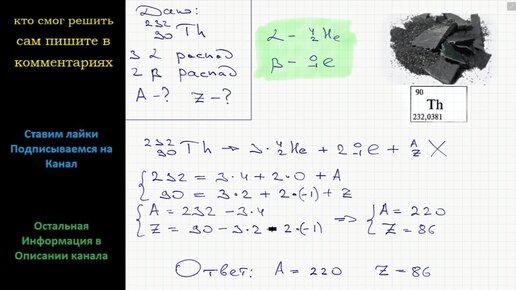 кто смог решить
сам пишите в
комментариях
Ставим лайки
Подписываемся на
Канал
Остальная
Информация в
Описании канала
Дано:
²³²₉₀Th
3 α распад
2 β распад
A-? Z-?
α - ⁴₂He
β - ⁰₋₁e
90
Th
232,0381
²³²₉₀Th → 3·⁴₂He + 2 ⁰₋₁e + ᴬ_Z X
{232 = 3·4 + 2·0 + A
{90 = 3·2 + 2·(-1) + Z
{A = 232 - 3·4
{Z = 90 - 3·2 - 2·(-1) => {A = 220
{Z = 86
Ответ: A = 220 Z = 86